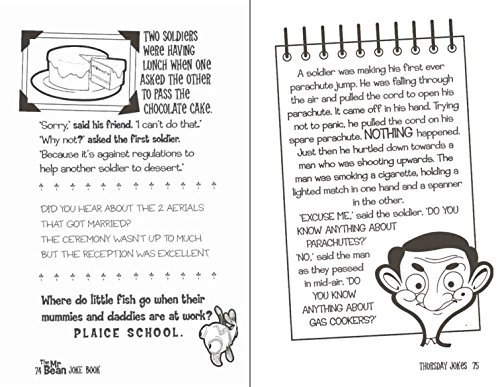 TWO SOLDIERS
WERE HAVING
LUNCH WHEN ONE
ASKED THE OTHER
TO PASS THE
CHOCOLATE CAKE.
'Sorry,' said his friend. 'I can't do that.'
'Why not?' asked the first soldier.
'Because it's against regulations to
help another soldier to dessert.'
DID YOU HEAR ABOUT THE 2 AERIALS
THAT GOT MARRIED?
THE CEREMONY WASN'T UP TO MUCH
BUT THE RECEPTION WAS EXCELLENT.
Where do little fish go when their
mummies and daddies are at work?
PLAICE SCHOOL.
74 The Mr Bean JOKE BOOK
A soldier was making his first ever
parachute jump. He was falling through
the air and pulled the cord to open his
parachute. It came off in his hand. Trying
not to panic, he pulled the cord on his
spare parachute. NOTHING happened.
Just then he hurtled down towards a
man who was shooting upwards. The
man was smoking a cigarette, holding a
lighted match in one hand and a spanner
in the other.
'EXCUSE ME,' said the soldier. 'DO YOU
KNOW ANYTHING ABOUT
PARACHUTES?'
'NO,' said the man
as they passed
in mid-air. 'DO
YOU KNOW
ANYTHING ABOUT
GAS COOKERS?'
THURSDAY JOKES 75